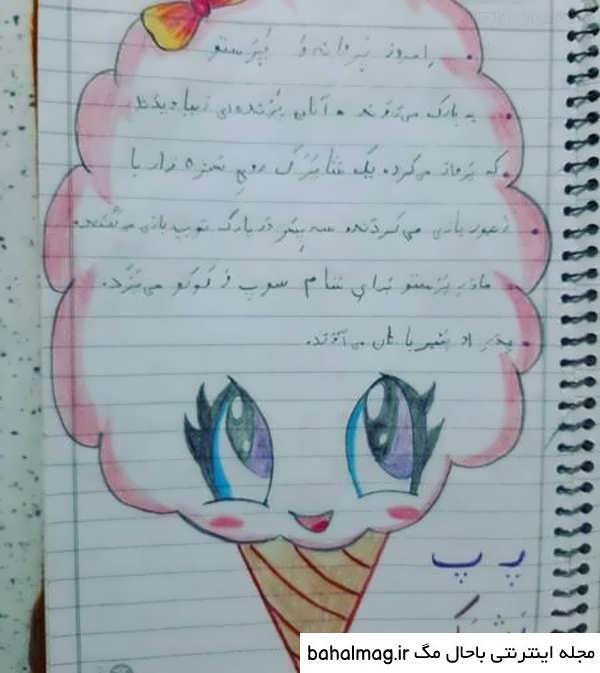 امروز پروانه و پرستو
به پارک می‌روند و آنان پرنده‌ای زیبا دیدند
که پرواز می‌کرد یک روی سبزه زار با
زنبور بازی می‌کردند سه پسر در پارک توپ بازی می‌کنند
مادر پرستو برای شام سوپ و کوکو می‌پزد
پدر او پنیر با نان می‌آورد
پ پ
مجله اینترنتی باحال مگ bahalmag.ir